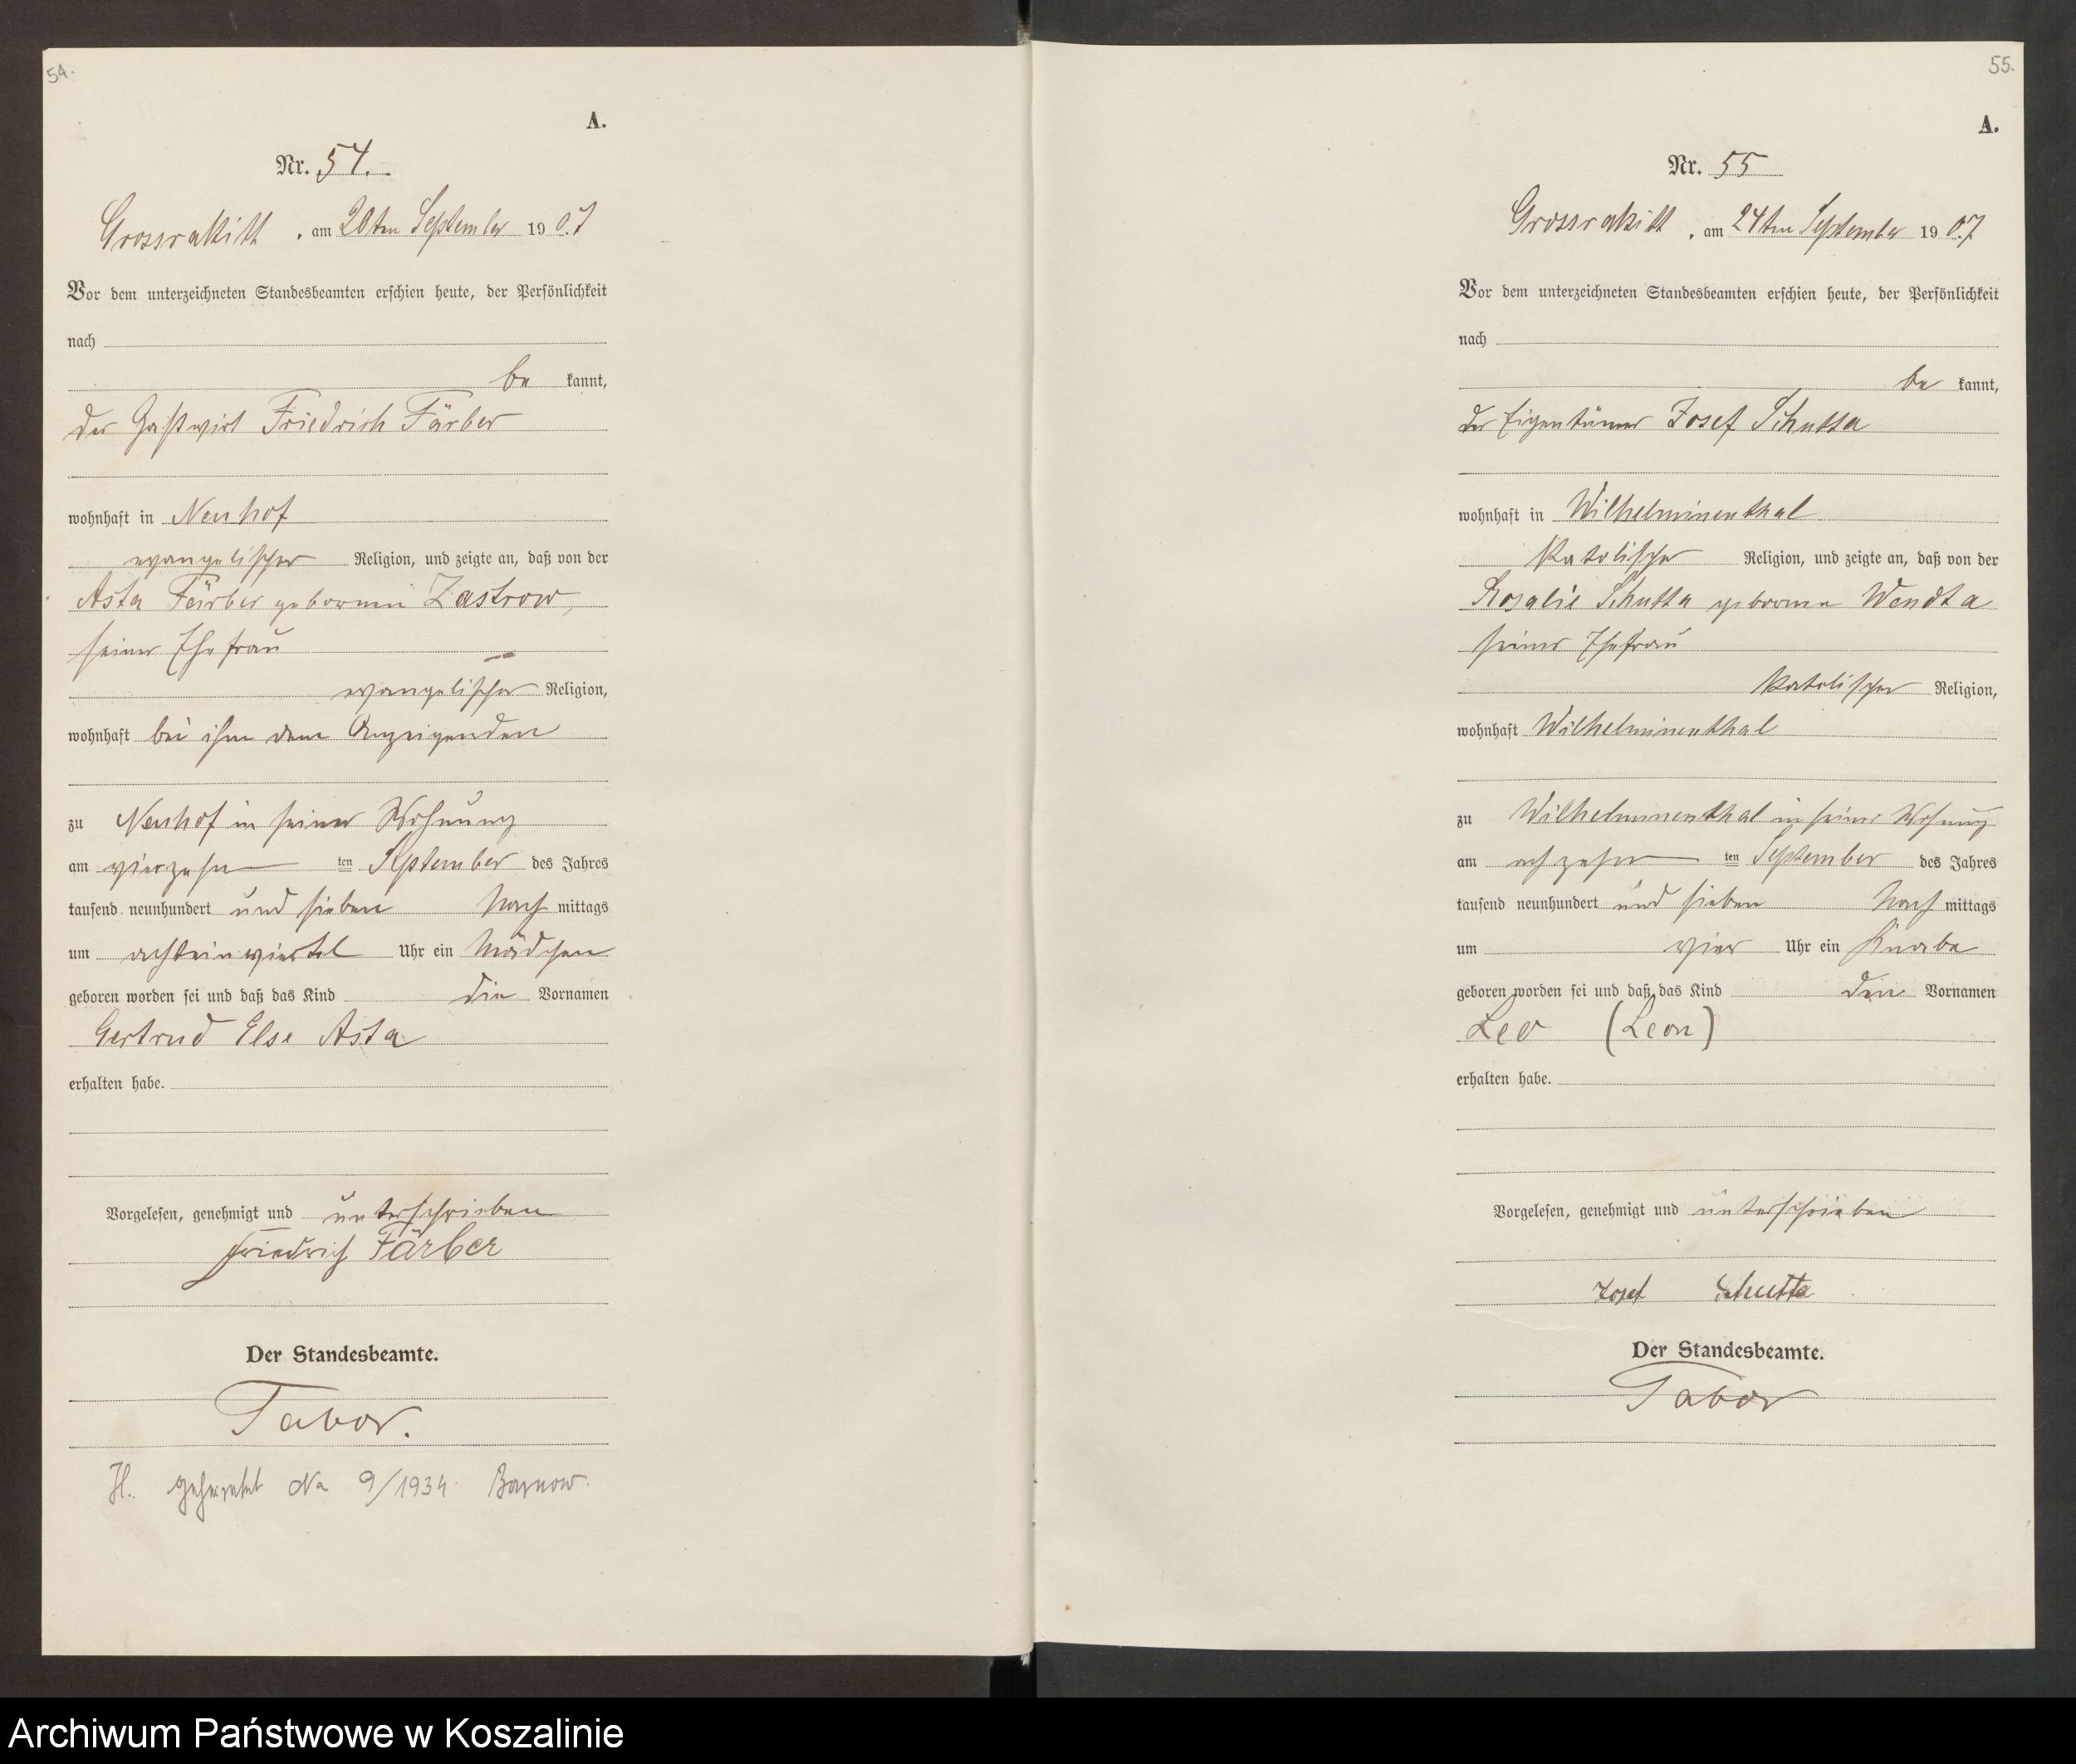 54.
A.
Nr. 54.
Grossrakitt, am 20ten September 1907
Vor dem unterzeichneten Standesbeamten erschien heute, der Persönlichkeit
nach
be kannt,
der Gastwirt Friedrich Färber
wohnhaft in Neuhof
evangelischer Religion, und zeigte an, daß von der
Asta Färber geborenen Zastrow,
seiner Ehefrau
evangelischer Religion,
wohnhaft bei ihm dem Anzeigenden
zu Neuhof in seiner Wohnung
am vierzehn ten September des Jahres
tausend neunhundert und sieben Nach mittags
um achteinviertel Uhr ein Mädchen
geboren worden sei und daß das Kind die Vornamen
Gertrud Else Asta
erhalten habe.
Vorgelesen, genehmigt und unterschrieben
Friedrich Färber
Der Standesbeamte.
Tabor.
geheiratet No 9/1934 Barnow.
55.
A.
Nr. 55
Grossrakitt, am 24ten September 1907
Vor dem unterzeichneten Standesbeamten erschien heute, der Persönlichkeit
nach
be kannt,
der Eigentümer Josef Schutta
wohnhaft in Wilhelminenthal
katolischer Religion, und zeigte an, daß von der
Rosalie Schutta geborene Wendta
seiner Ehefrau
katolischer Religion,
wohnhaft Wilhelminenthal
zu Wilhelminenthal in seiner Wohnung
am achzehn ten September des Jahres
tausend neunhundert und sieben Nach mittags
um vier Uhr ein Knabe
geboren worden sei und daß das Kind den Vornamen
Leo (Leon)
erhalten habe.
Vorgelesen, genehmigt und unterschrieben
Josef Schutta
Der Standesbeamte.
Tabor
Archiwum Państwowe w Koszalinie